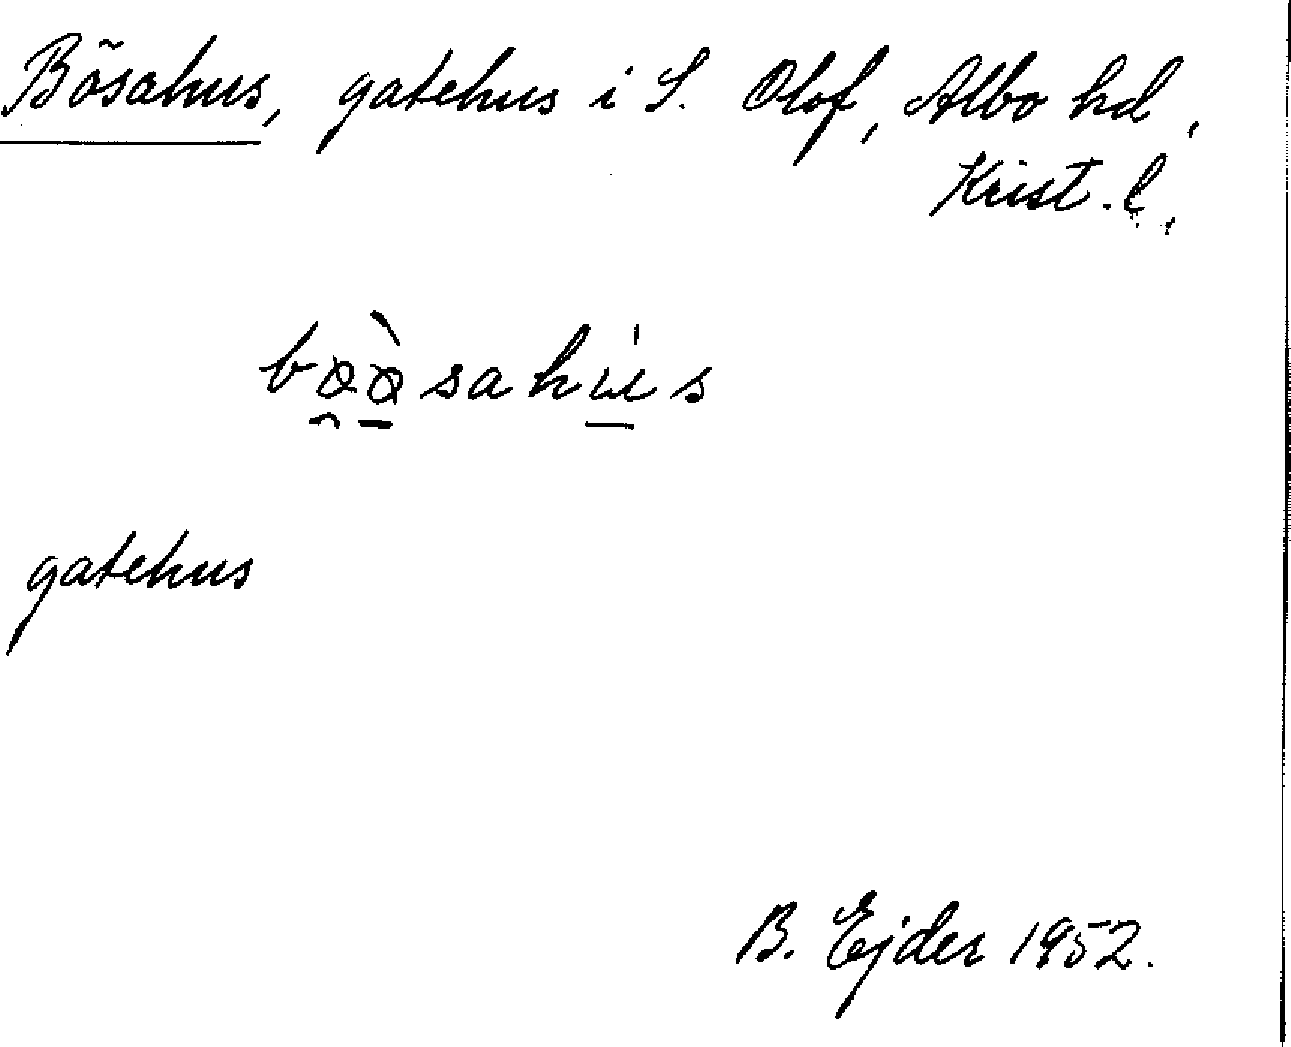 Bösahus, gatehus i S. Olof, Albo hd,
Krist. l.
bø̯ø̱̀sahu̱̍s
gatehus
B. Ejder 1952.